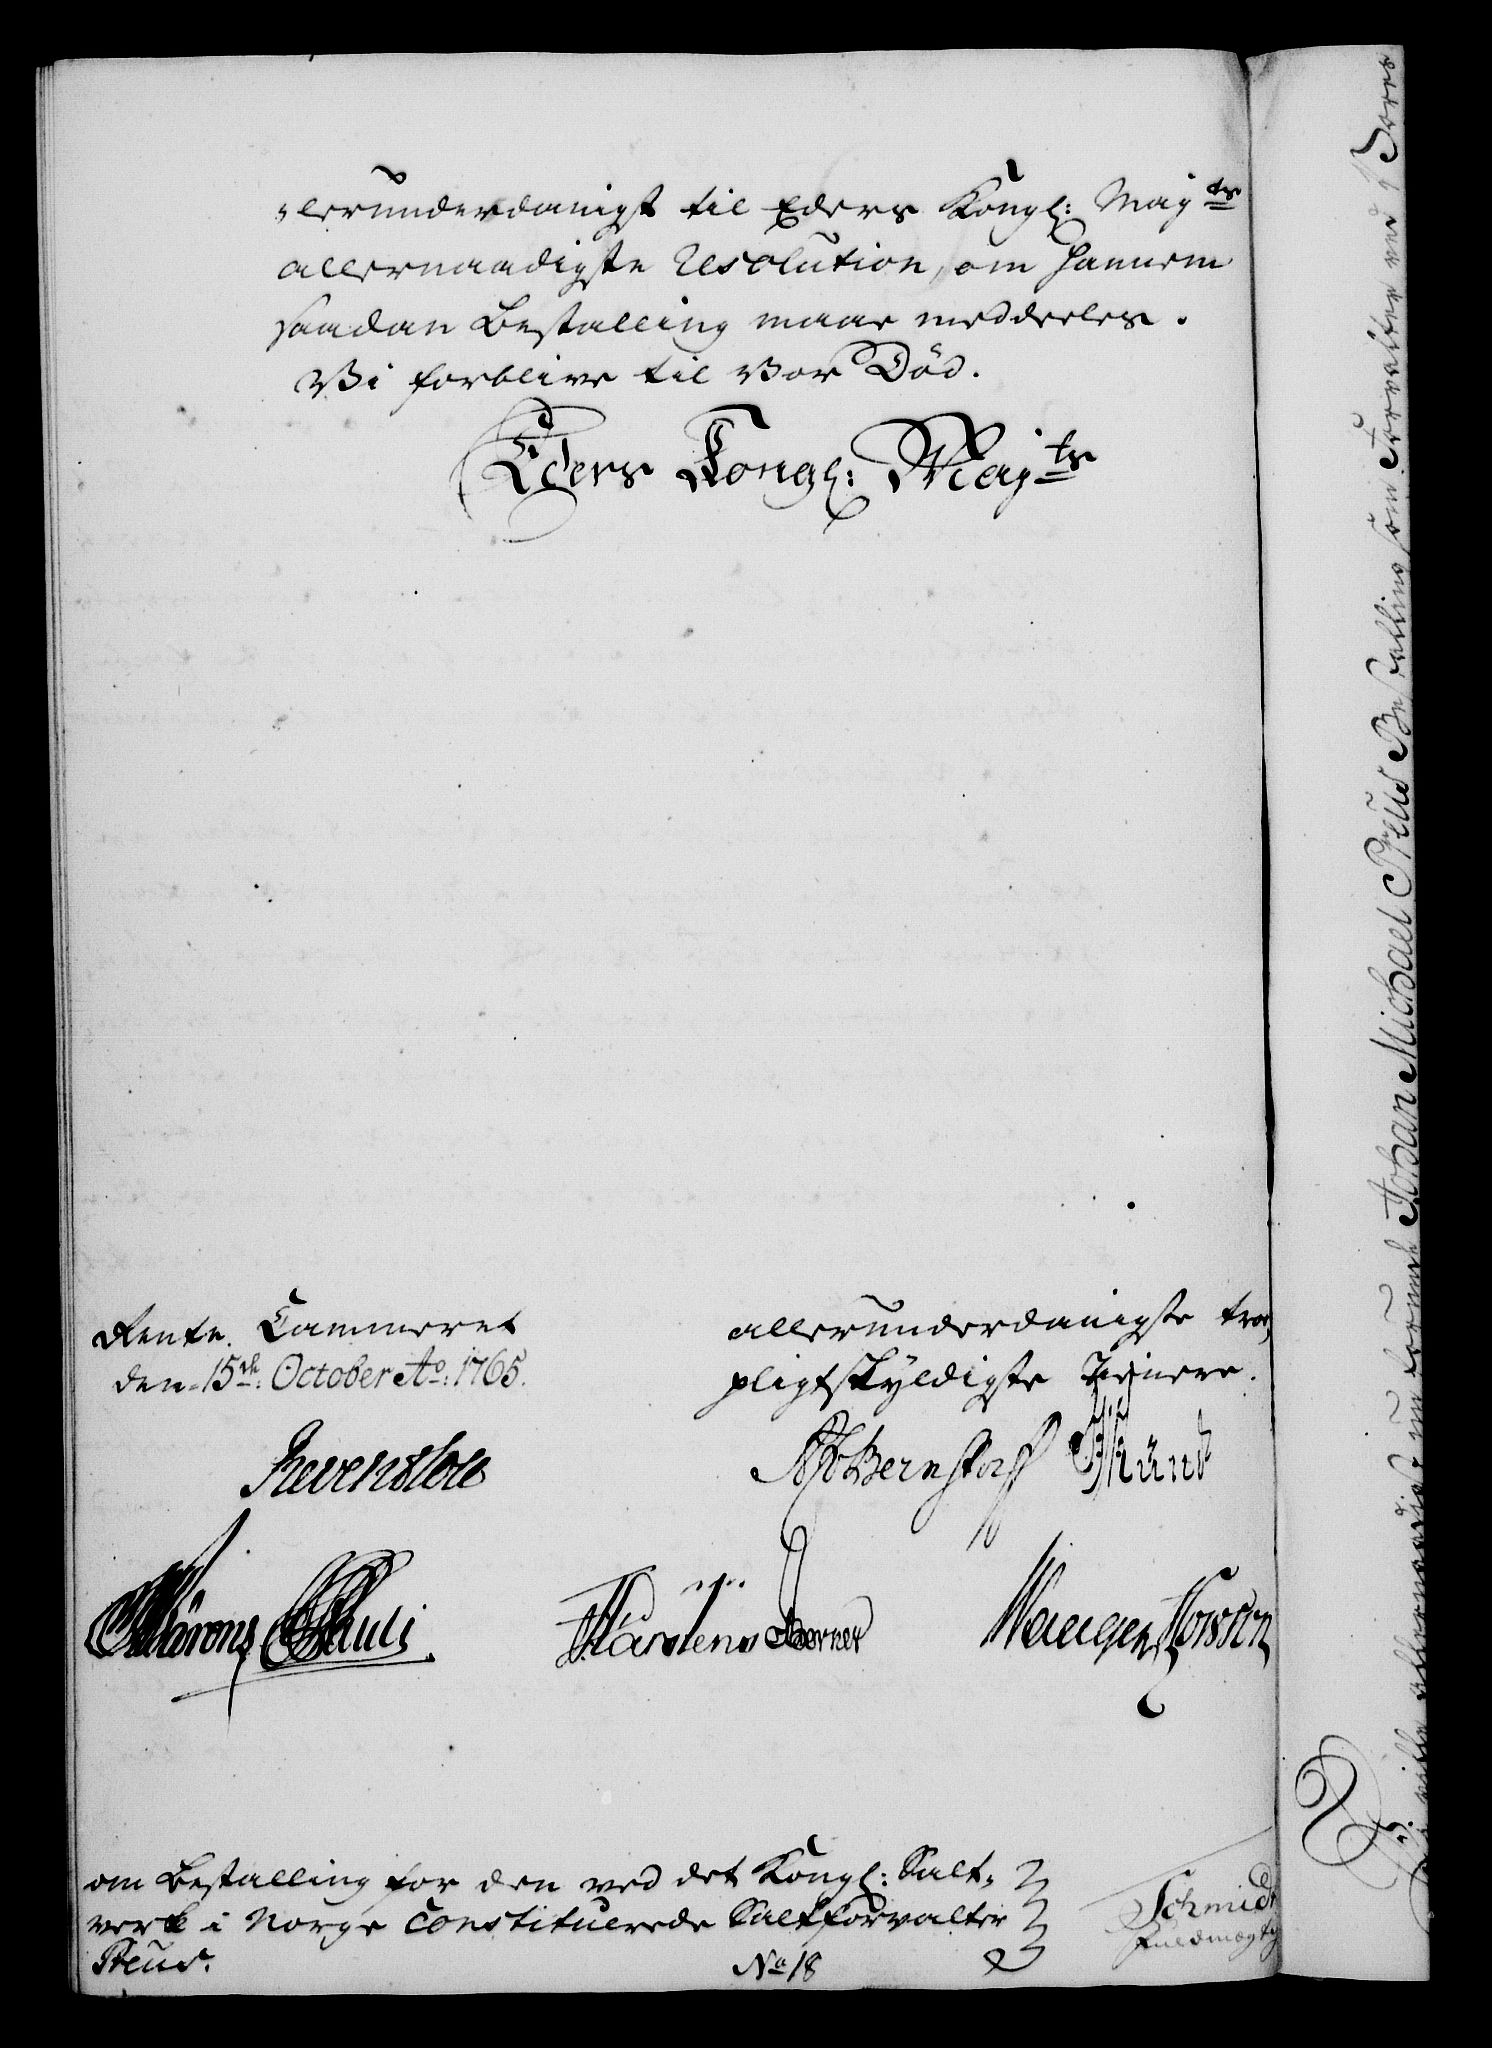 „lerunderdanigst til Eders Kongl: Majts
allernaadigste Resolution, om hannem
saadan Bestalling maae meddeeles.
Vi forblive til Vor Död.
Eders Kongl: Majts
Rente Cammeret
den 15de October Ao: 1765.
allerunderdanigste troe
pligtskyldigste Tienere.
Reventlow
Bernstorff
Pauli
Kärstens Berner
om Bestalling for den ved det Kongl: Salt-
verk i Norge Constituerede Saltforvalter
Preus.
No 18
Schmidt
Fuldmægtig
ville allernaadigst Johan Michael Preus Bestalling som Forvalter ved Vores